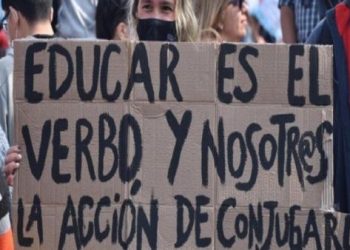 EDUCAR ES EL
VERBO Y NOSOTR@S
LA ACCIÓN DE CONJUGAR